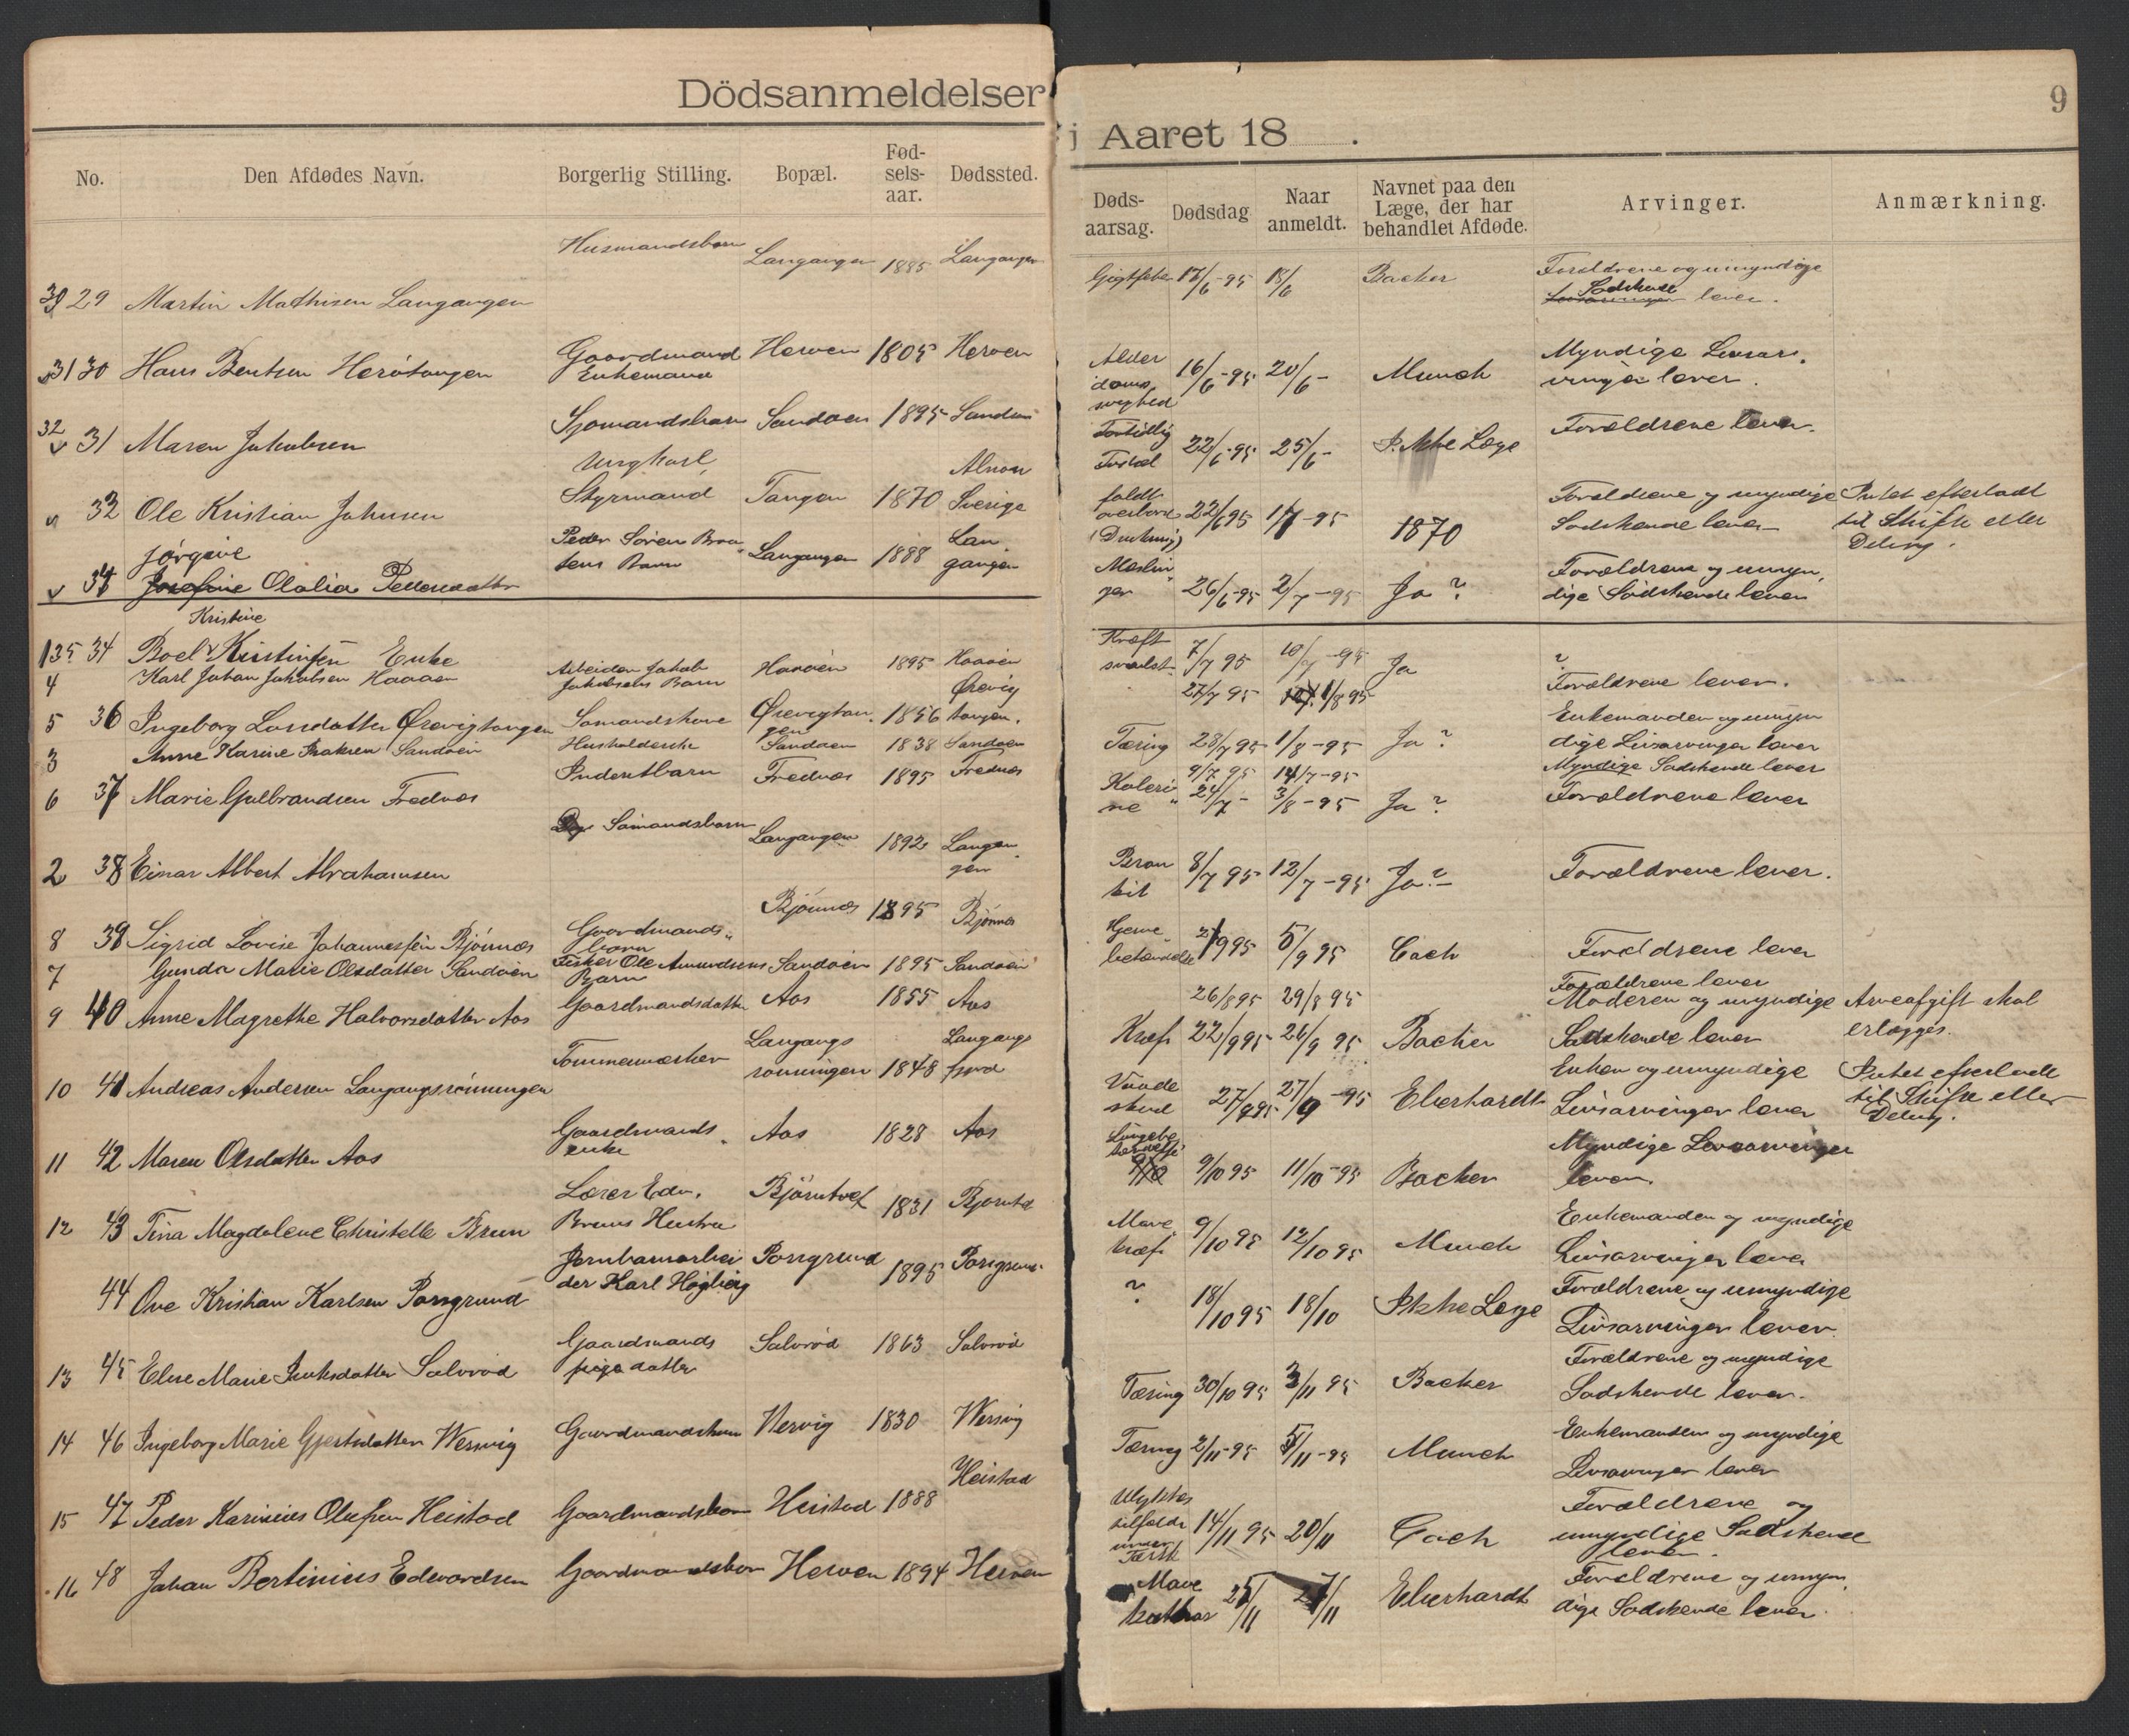 Dödsanmeldelser i Aaret 18 .
9
No. Den Afdødes Navn. Borgerlig Stilling. Bopæl. Fødselsaar. Dødssted. Dødsaarsag. Dødsdag Naar anmeldt. Navnet paa den Læge, der har behandlet Afdøde. Arvinger. Anmærkning.
29 Martin Mathisen Langangen Husmandsbarn Langangen 1885 Langangen Gigtfeber 17/6-95 18/6 Backer Forældrene og umyndige Sødskende lever.
31 30 Hans Bentsen Herötangen Gaardmand Enkemand Herøen 1805 Herøen Alderdomssvaghed 16/6-95 20/6- Munch Myndige Livsarvinger lever.
32 31 Maren Jakobsen Sjømandsbarn Sandøen 1895 Sandøen Fortidlig Fødsel 22/6-95 25/6- Ikke Læge Forældrene lever.
32 Ole Kristian Johnsen Ungkarl Styrmand Tangen 1870 Sverige faldt overbord (Drukning) 22/6 95 1/7-95 1870 Forældrene og myndige Sødskende lever Intet efterladt til Skifte eller Deling.
Jörgine Olalia Pedersdatter Peder Sören Braatens Barn Langangen 1888 Langangen Mæslinger 26/6-95 2/7-95 Ja? Forældrene og umyndige Sødskende lever
135 34 Boel Kristine Enke Kræftsvulst 7/7 95 10/7-95 Ja ?
4 Karl Johan Jakobsen Haaøen Arbeider Jakob Jakobsens Barn Haaøen 1895 Haaøen 27/7 95 1/8 95 Forældrene lever.
5 36 Ingeborg Larsdatter Ørevigtangen Sømandskone Ørevigtangen 1856 Ørevigtangen. Tæring 28/7 95 1/8-95 Ja? Enkemanden og umyndige Livsarvinger lever
3 Anne Karine Isaksen Sandøen Husholderske Sandøen 1838 Sandøen 9/7 95 14/7-95 Myndige Sødskende lever
6 37 Marie Gulbrandsen Frednæs Inderstbarn Frednæs 1895 Frednæs Kolerine 24/7- 3/8-95 Ja? Forældrene lever
2 38 Einar Albert Abrahamsen Sømandsbarn Langangen 1892 Langangen Bronkit 8/7 95 12/7-95 Ja?- Forældrene lever.
8 39 Sigrid Lovise Johannessen Bjönnæs Gaardmandsbarn Bjönnæs 1895 Bjönnæs Hjernebetændelse 95 5/9 95 Coch Forældrene lever
7 Gunda Marie Olsdatter Sandøen Fisker Ole Amundsens Barn Sandøen 1895 Sandøen 26/8 95 29/8 95 Forældrene lever
9 40 Anne Magrethe Halvorsdatter Aas Gaardmandsdatter Aas 1855 Aas Kræft 22/9 95 26/9 95 Backer Moderen og myndige Sødskende lever Arveafgift skal erlægges.
10 41 Andreas Andersen Langangsrønningen Tømmermærker Langangsrønningen 1848 Langangsfjord Vaadeskud 27/9 95 27/9-95 Eberhardt Enken og umyndige Livsarvinger lever Intet efterladt til Skifte eller Deling.
11 42 Maren Olsdatter Aas Gaardmandsenke Aas 1828 Aas Lungebetændelse 9/10 95 11/10-95 Backer Myndige Livsarvinger lever.
12 43 Tina Magdalene Christelle Brun Lærer Edv. Bruns Hustru Bjørntvet 1831 Bjørntvet Mavekræft 9/10 95 12/10 95 Munch Enkemanden og myndige Livsarvinger lever
44 Ove Kristian Karlsen Porsgrund Jernbanearbeider Karl Högbergs Porsgrund 1895 Porsgrund ? 18/10 95 18/10 Ikke Læge Forældrene og umyndige Livsarvinger lever.
13 45 Else Marie Isaksdatter Salvrød Gaardmands pige datter Salvrød 1863 Salvrød Tæring 30/10 95 3/11 95 Backer Forældrene og myndige Sødskende lever.
14 46 Ingeborg Marie Gjertsdatter Wersvig Gaardmandskone Versvig 1830 Wersvig Tæring 2/11-95 5/11-95 Munch Enkemanden og myndige Livsarvinger lever
15 47 Peder Karinius Olufsen Heistad Gaardmandsbarn Heistad 1888 Heistad Ulykkestilfælde under Tærsk 14/11 95 20/11 Coch Forældrene og umyndige Sødskende lever.
16 48 Johan Bertinius Edvardsen Gaardmandsbarn Herøen 1894 Herøen Mavekatarr 25/11 27/11 Eberhardt Forældrene og umyndige Sødskende lever.